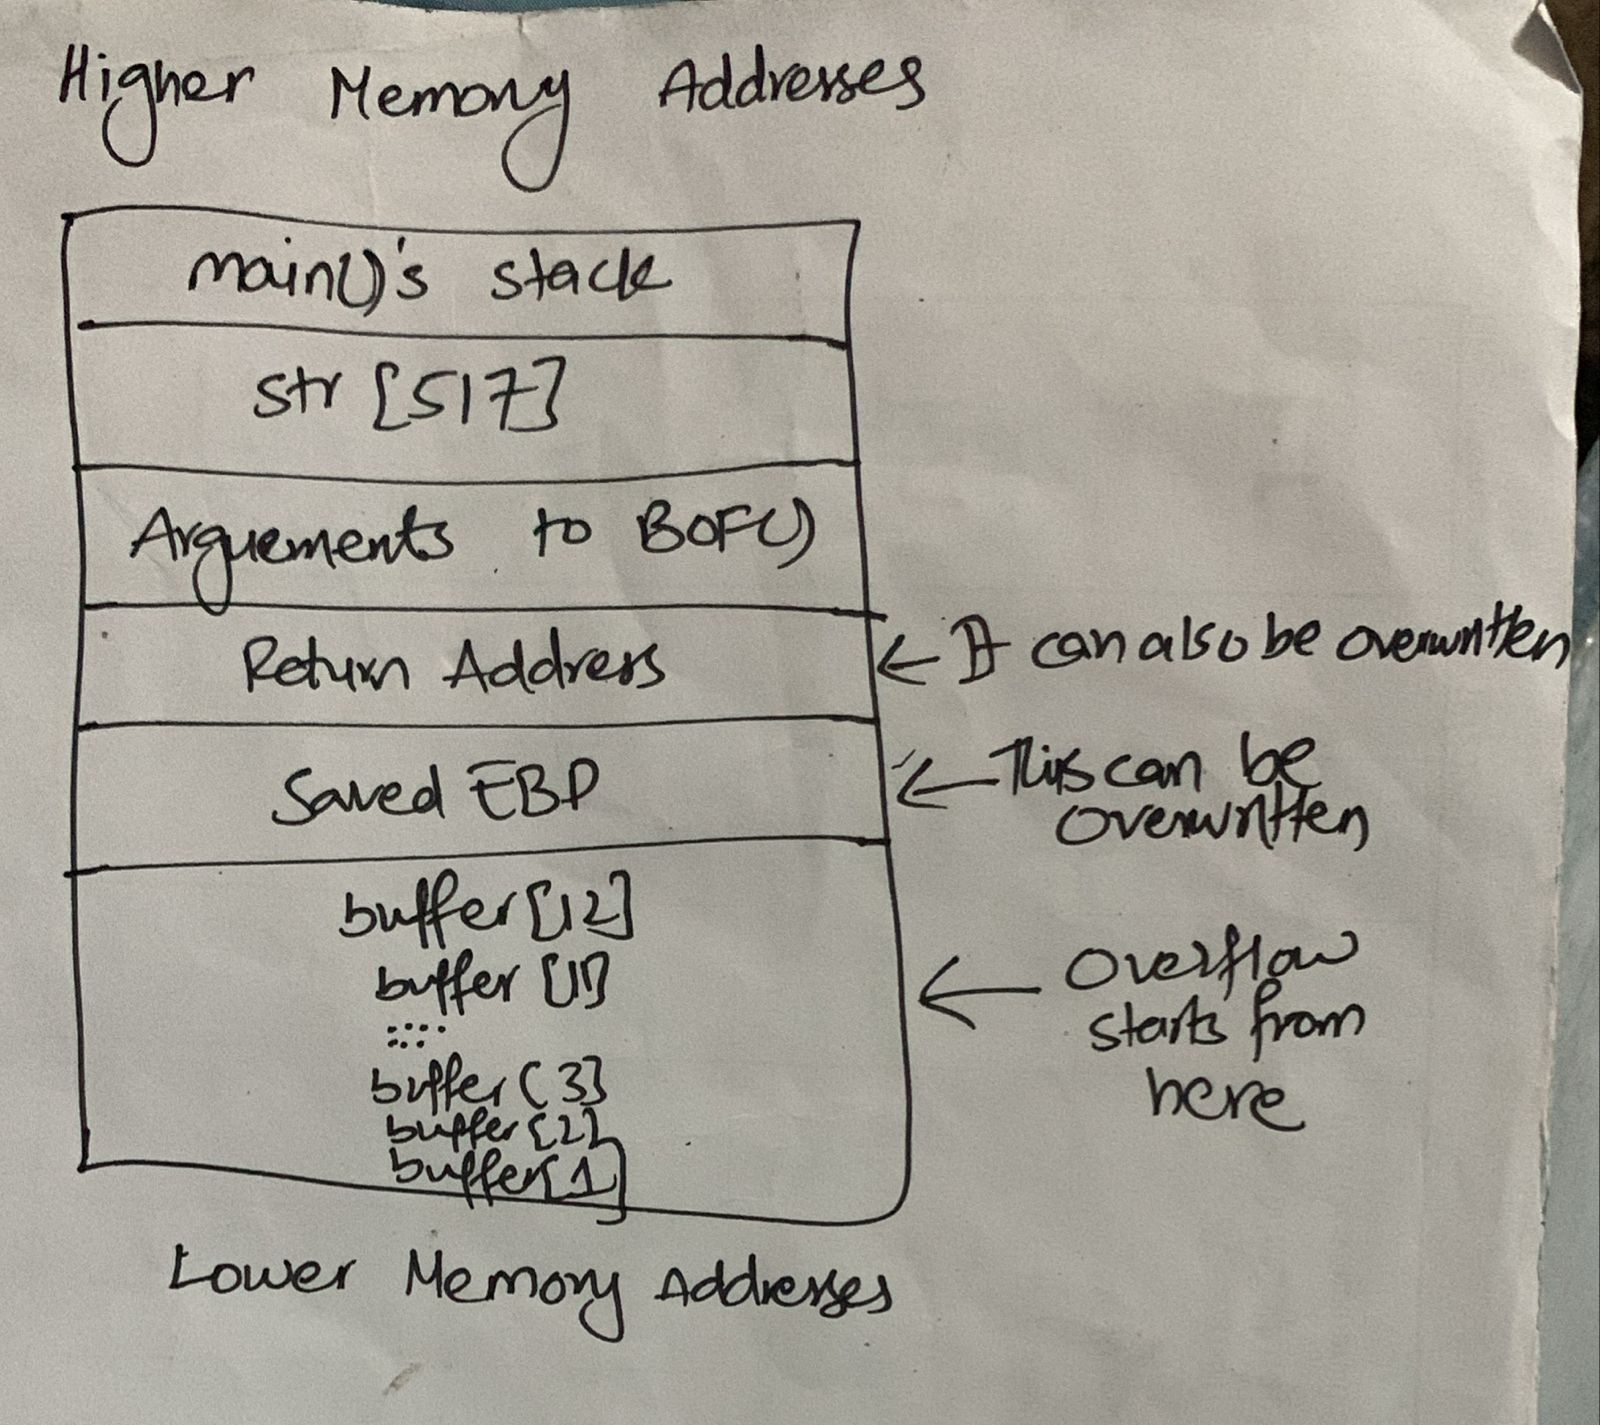 Higher Memory Addresses
main()'s stack
str [517]
Arguements to BOF()
Return Address
← It can also be overwritten
Saved EBP
← This can be
overwritten
buffer[12]
buffer [11]
::::
buffer[3]
buffer[2]
buffer[1]
← Overflow
starts from
here
Lower Memory Addresses